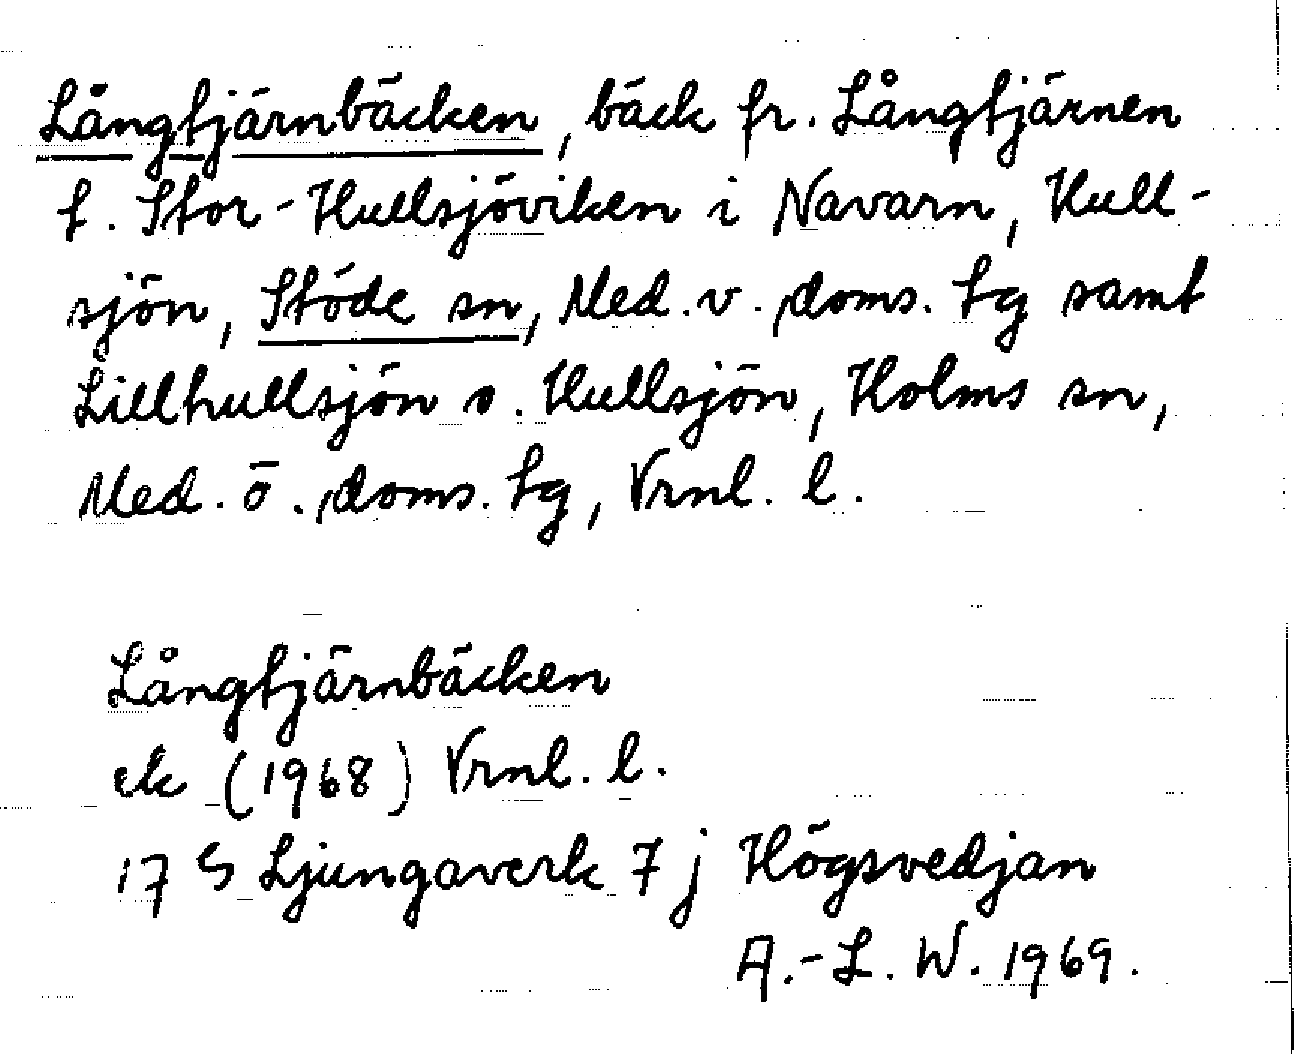 Långtjärnbäcken, bäck fr. Långtjärnen
t. Stor-Hullsjöviken i Navarn, Hull-
sjön, Stöde sn, Med. v. doms. tg samt
Lillhullsjön o. Hullsjön, Holms sn,
Med. ö. doms. tg, Vrnl. l.
Långtjärnbäcken
ek (1968) Vrnl. l.
17 G Ljungaverk 7 j Högsvedjan
A.-L. W. 1969.